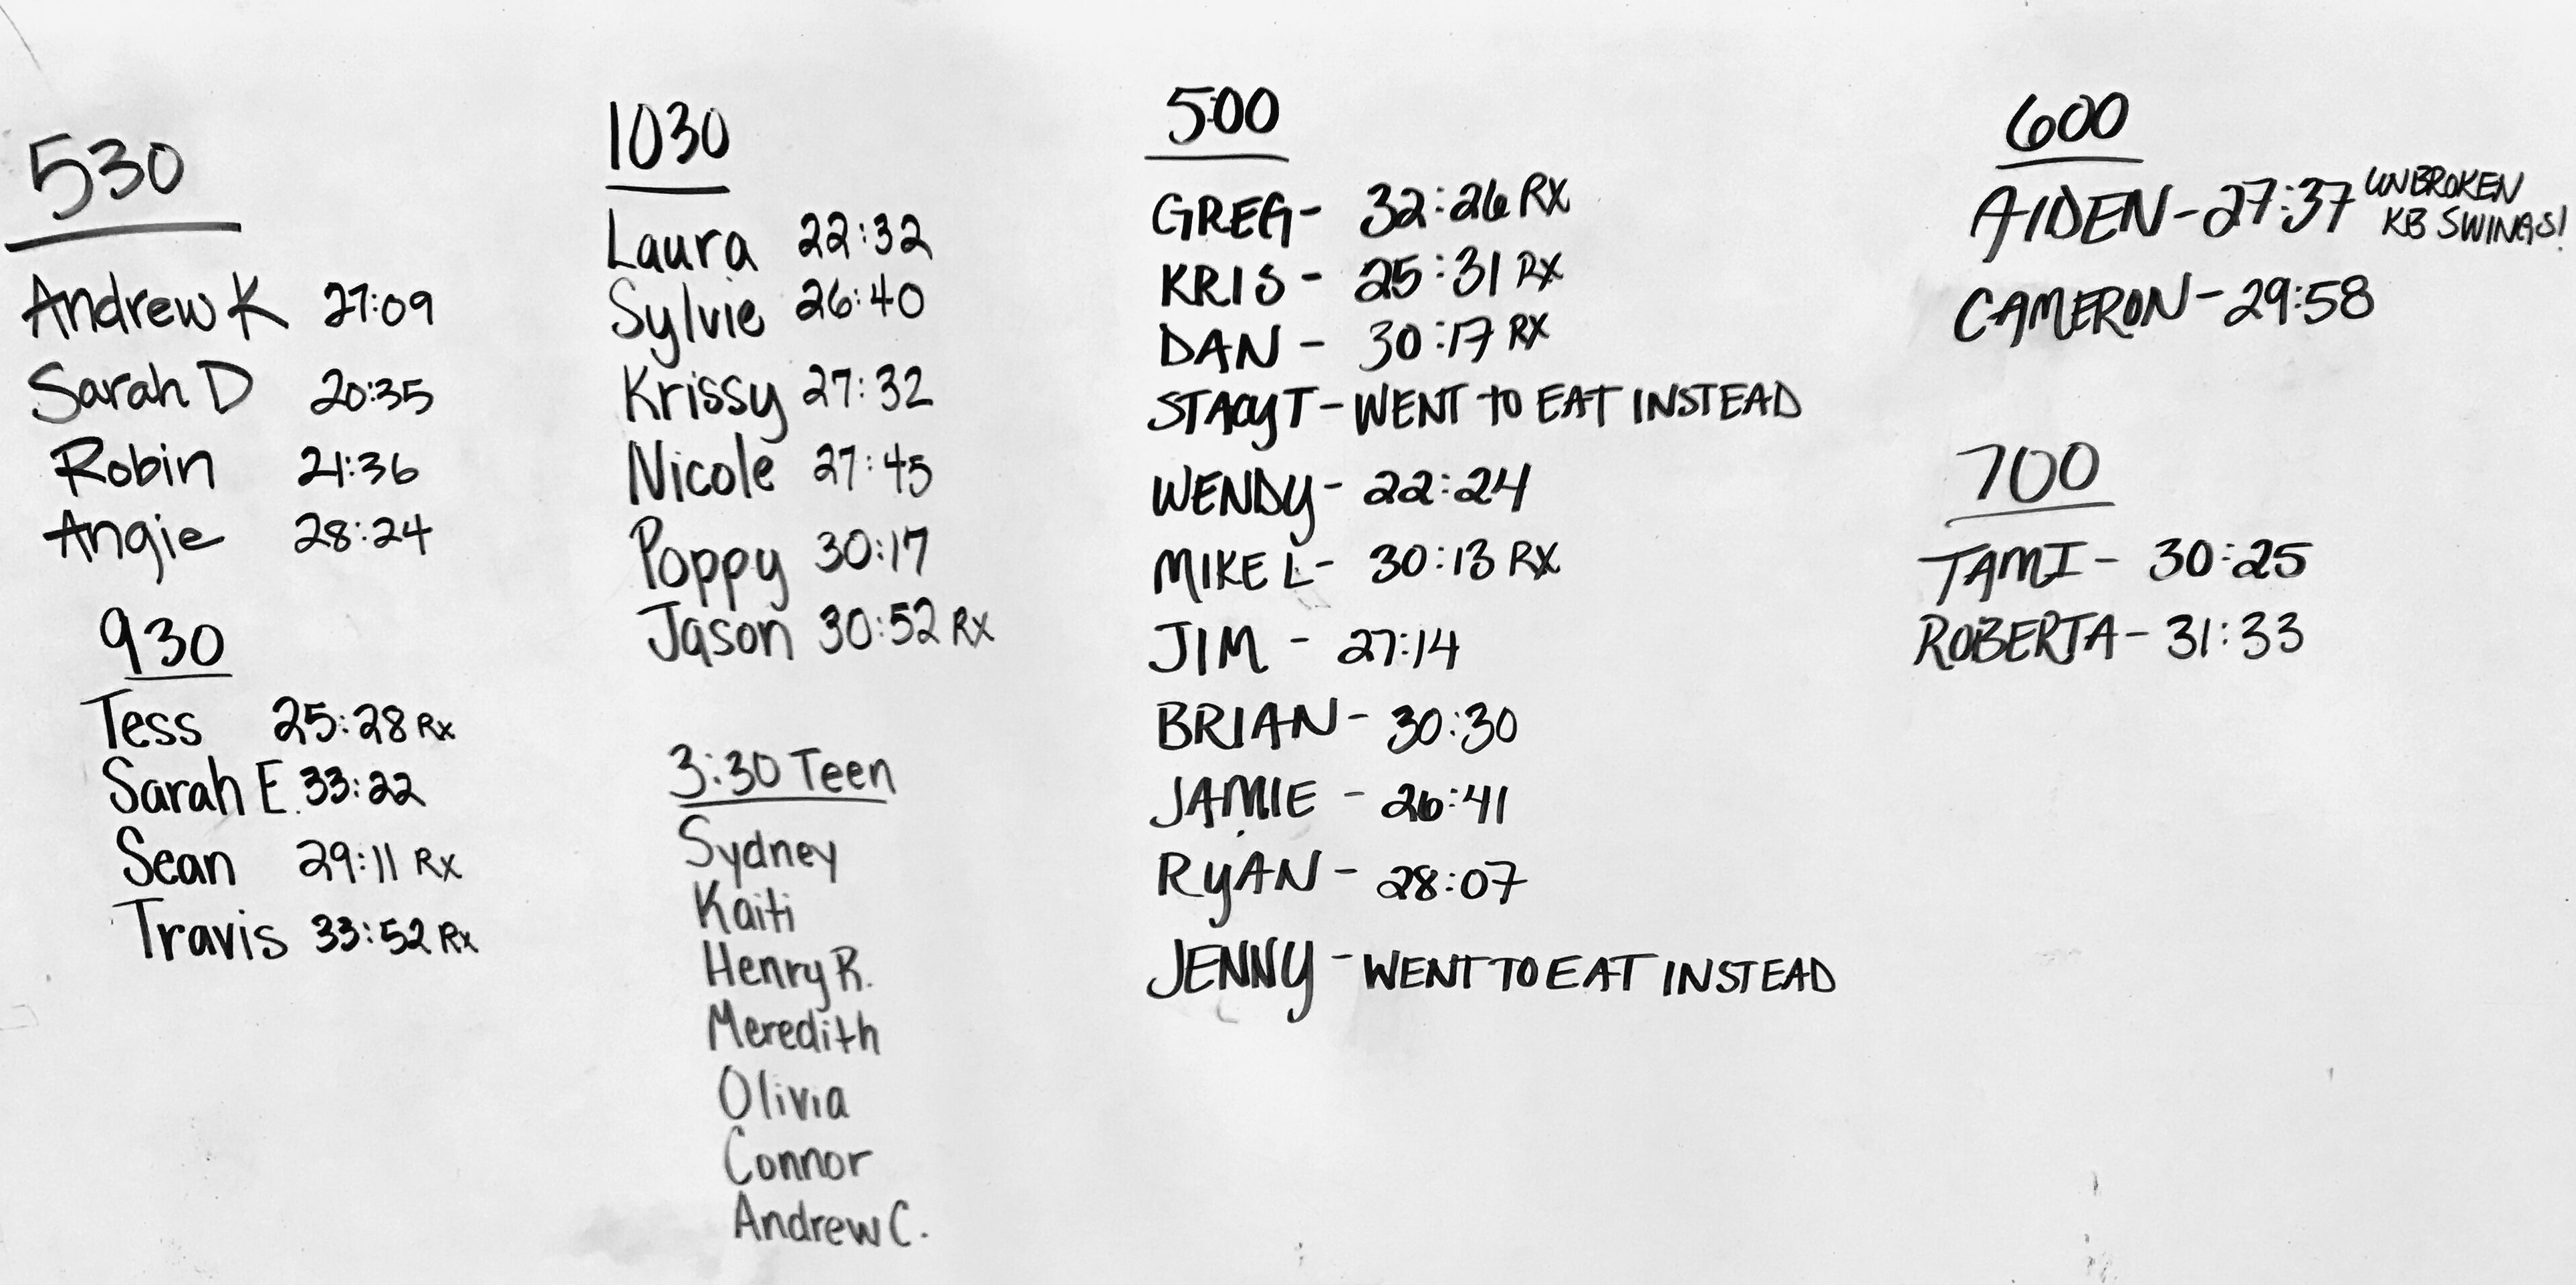 530
Andrew K 27:09
Sarah D 20:35
Robin 21:36
Angie 28:24
930
Tess 25:28 Rx
Sarah E. 33:22
Sean 29:11 Rx
Travis 33:52 Rx
1030
Laura 22:32
Sylvie 26:40
Krissy 27:32
Nicole 27:45
Poppy 30:17
Jason 30:52 Rx
3:30 Teen
Sydney
Kaiti
Henry R.
Meredith
Olivia
Connor
Andrew C.
500
GREG - 32:26 RX
KRIS - 25:31 RX
DAN - 30:17 RX
STACY T - WENT TO EAT INSTEAD
WENDY - 22:24
MIKE L - 30:13 RX
JIM - 27:14
BRIAN - 30:30
JAMIE - 26:41
RYAN - 28:07
JENNY - WENT TO EAT INSTEAD
600
AIDEN - 27:37 UNBROKEN
KB SWINGS!
CAMERON - 29:58
700
TAMI - 30:25
ROBERTA - 31:33